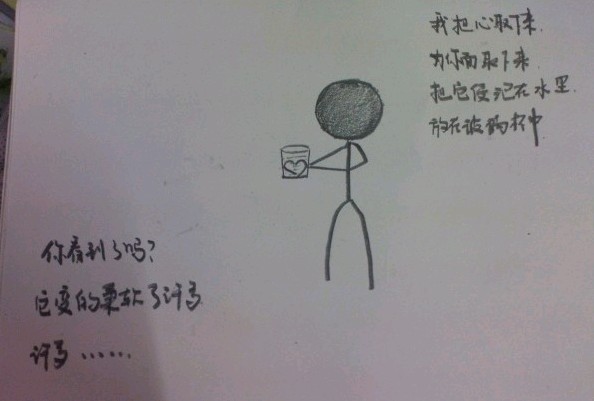 我把心取下来
为你而取下来
把它侵泡在水里
放在玻璃杯中
你看到了吗?
它变的柔软了许多
许多……